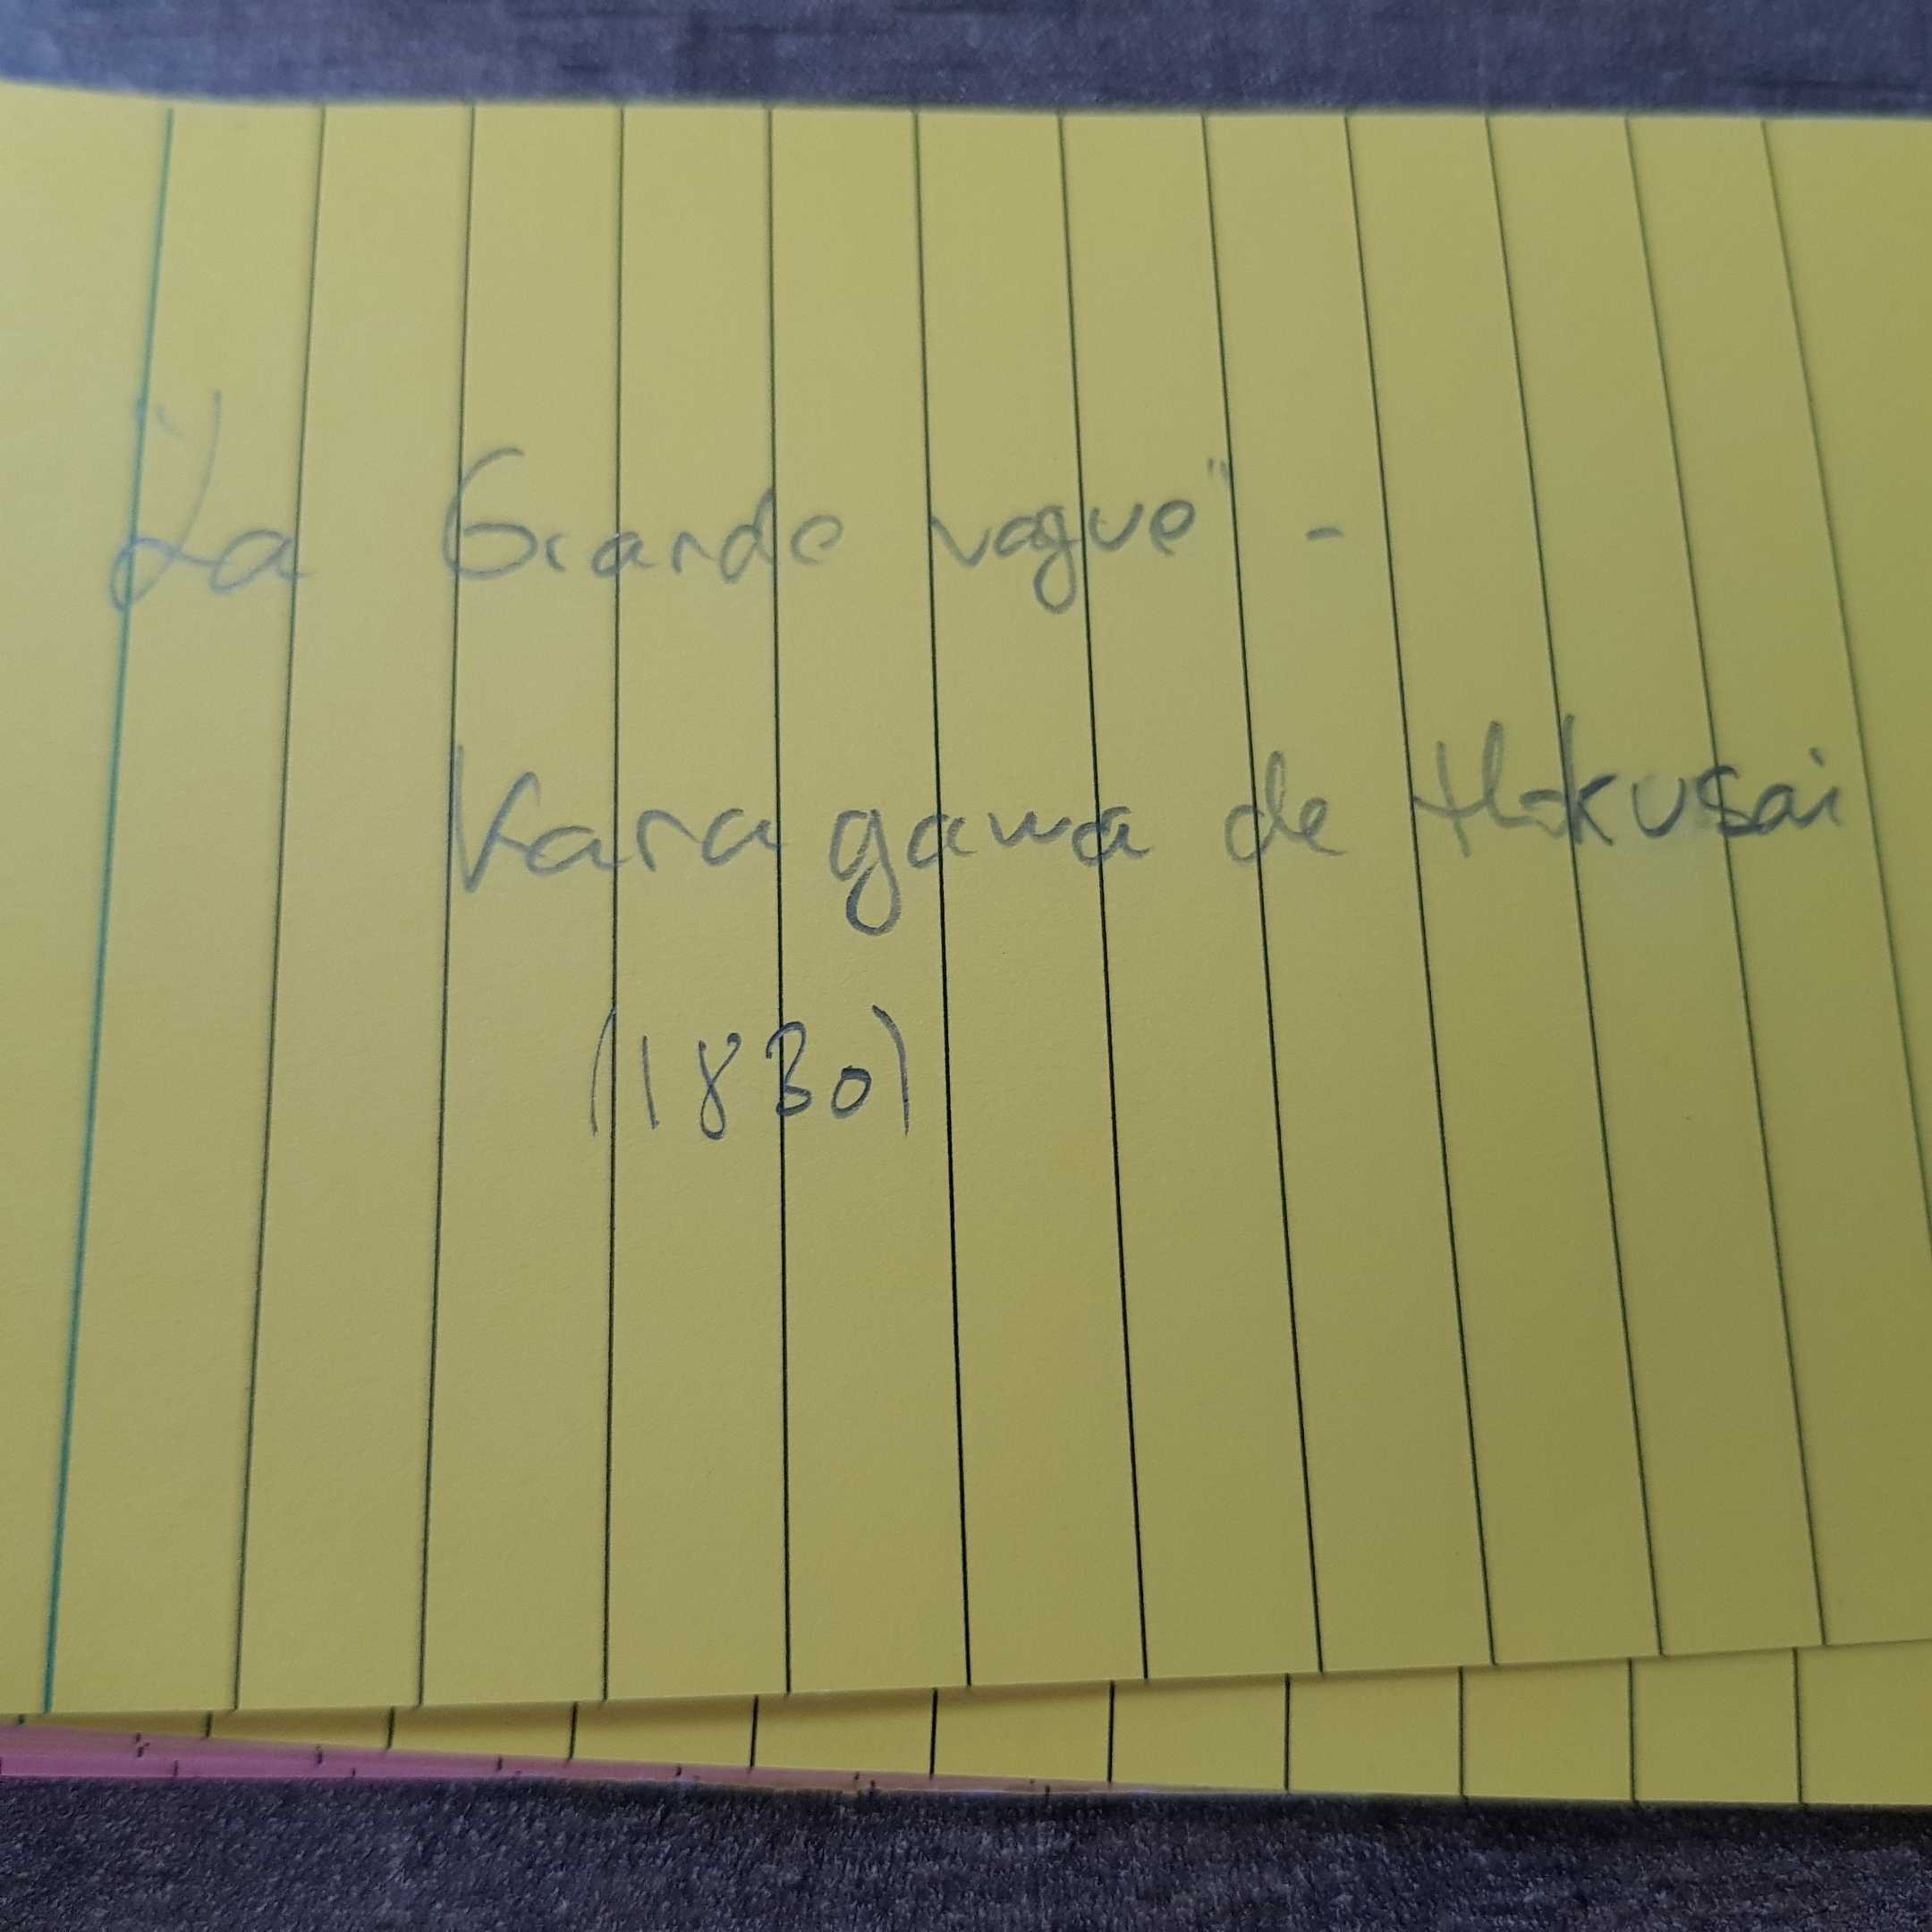 "La Grande vague" -
Kanagawa de Hokusai
(1830)